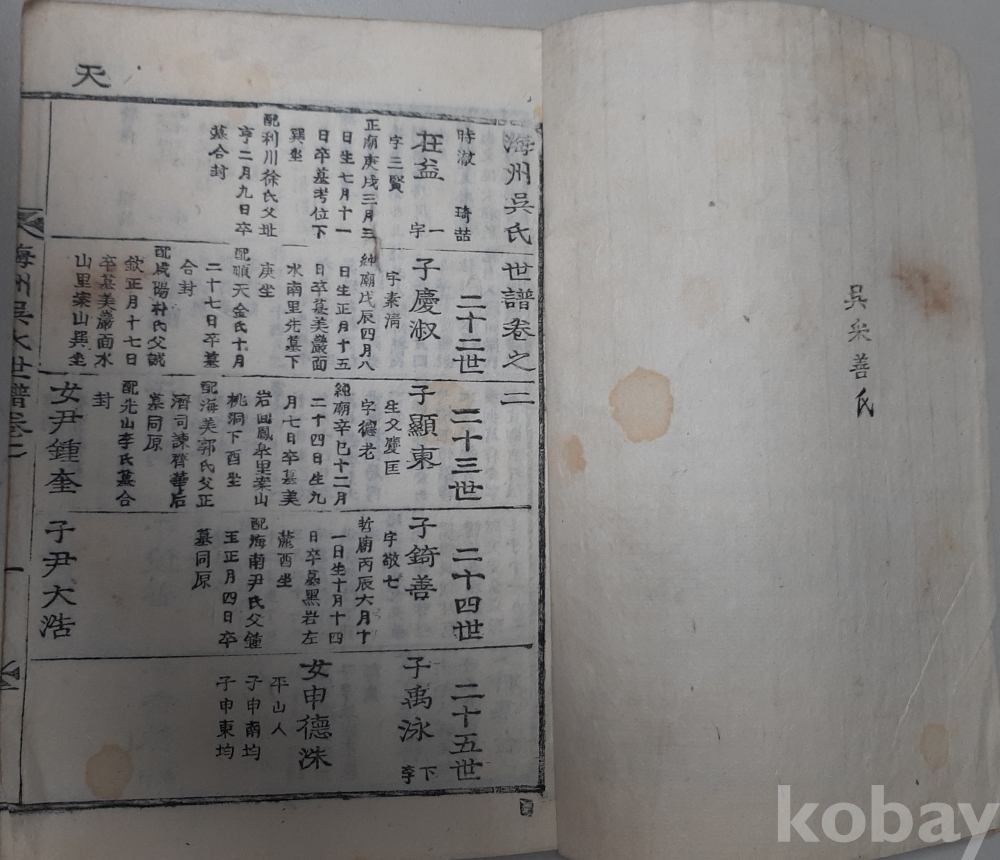 吳采善氏
海州吳氏世譜卷之二
時澈 琦喆
在益 一字
字三賢
正廟庚戌三月三
日生七月十一
日卒墓考位下
巽坐
配利川徐氏父址
亨二月九日卒
墓合封
二十二世
子慶淑
字素淸
純廟戊辰四月八
日生正月十五
日卒墓美巖面
水南里先墓下
庚坐
配順天金氏十月
二十七日卒墓
合封
配咸陽朴氏父誠
欽正月十七日
卒墓美巖面水
山里案山巽坐
二十三世
子顯東
生父慶匡
字德老
純廟辛巳十二月
二十四日生九
月七日卒墓美
岩面鳳泉里案山
桃洞下酉坐
配海美郭氏父正
濟司諫齊華后
墓同原
配光山李氏墓合
封
女尹鍾奎
二十四世
子錡善
字敬七
哲廟丙辰六月十
一日生十月十四
日卒墓黑岩左
麓酉坐
配海南尹氏父鍾
玉正月四日卒
墓同原
子尹大浩
二十五世
子禹泳
下李
女申德洙
平山人
子申南均
子申東均
天
海州吳氏世譜卷二
一
kobay